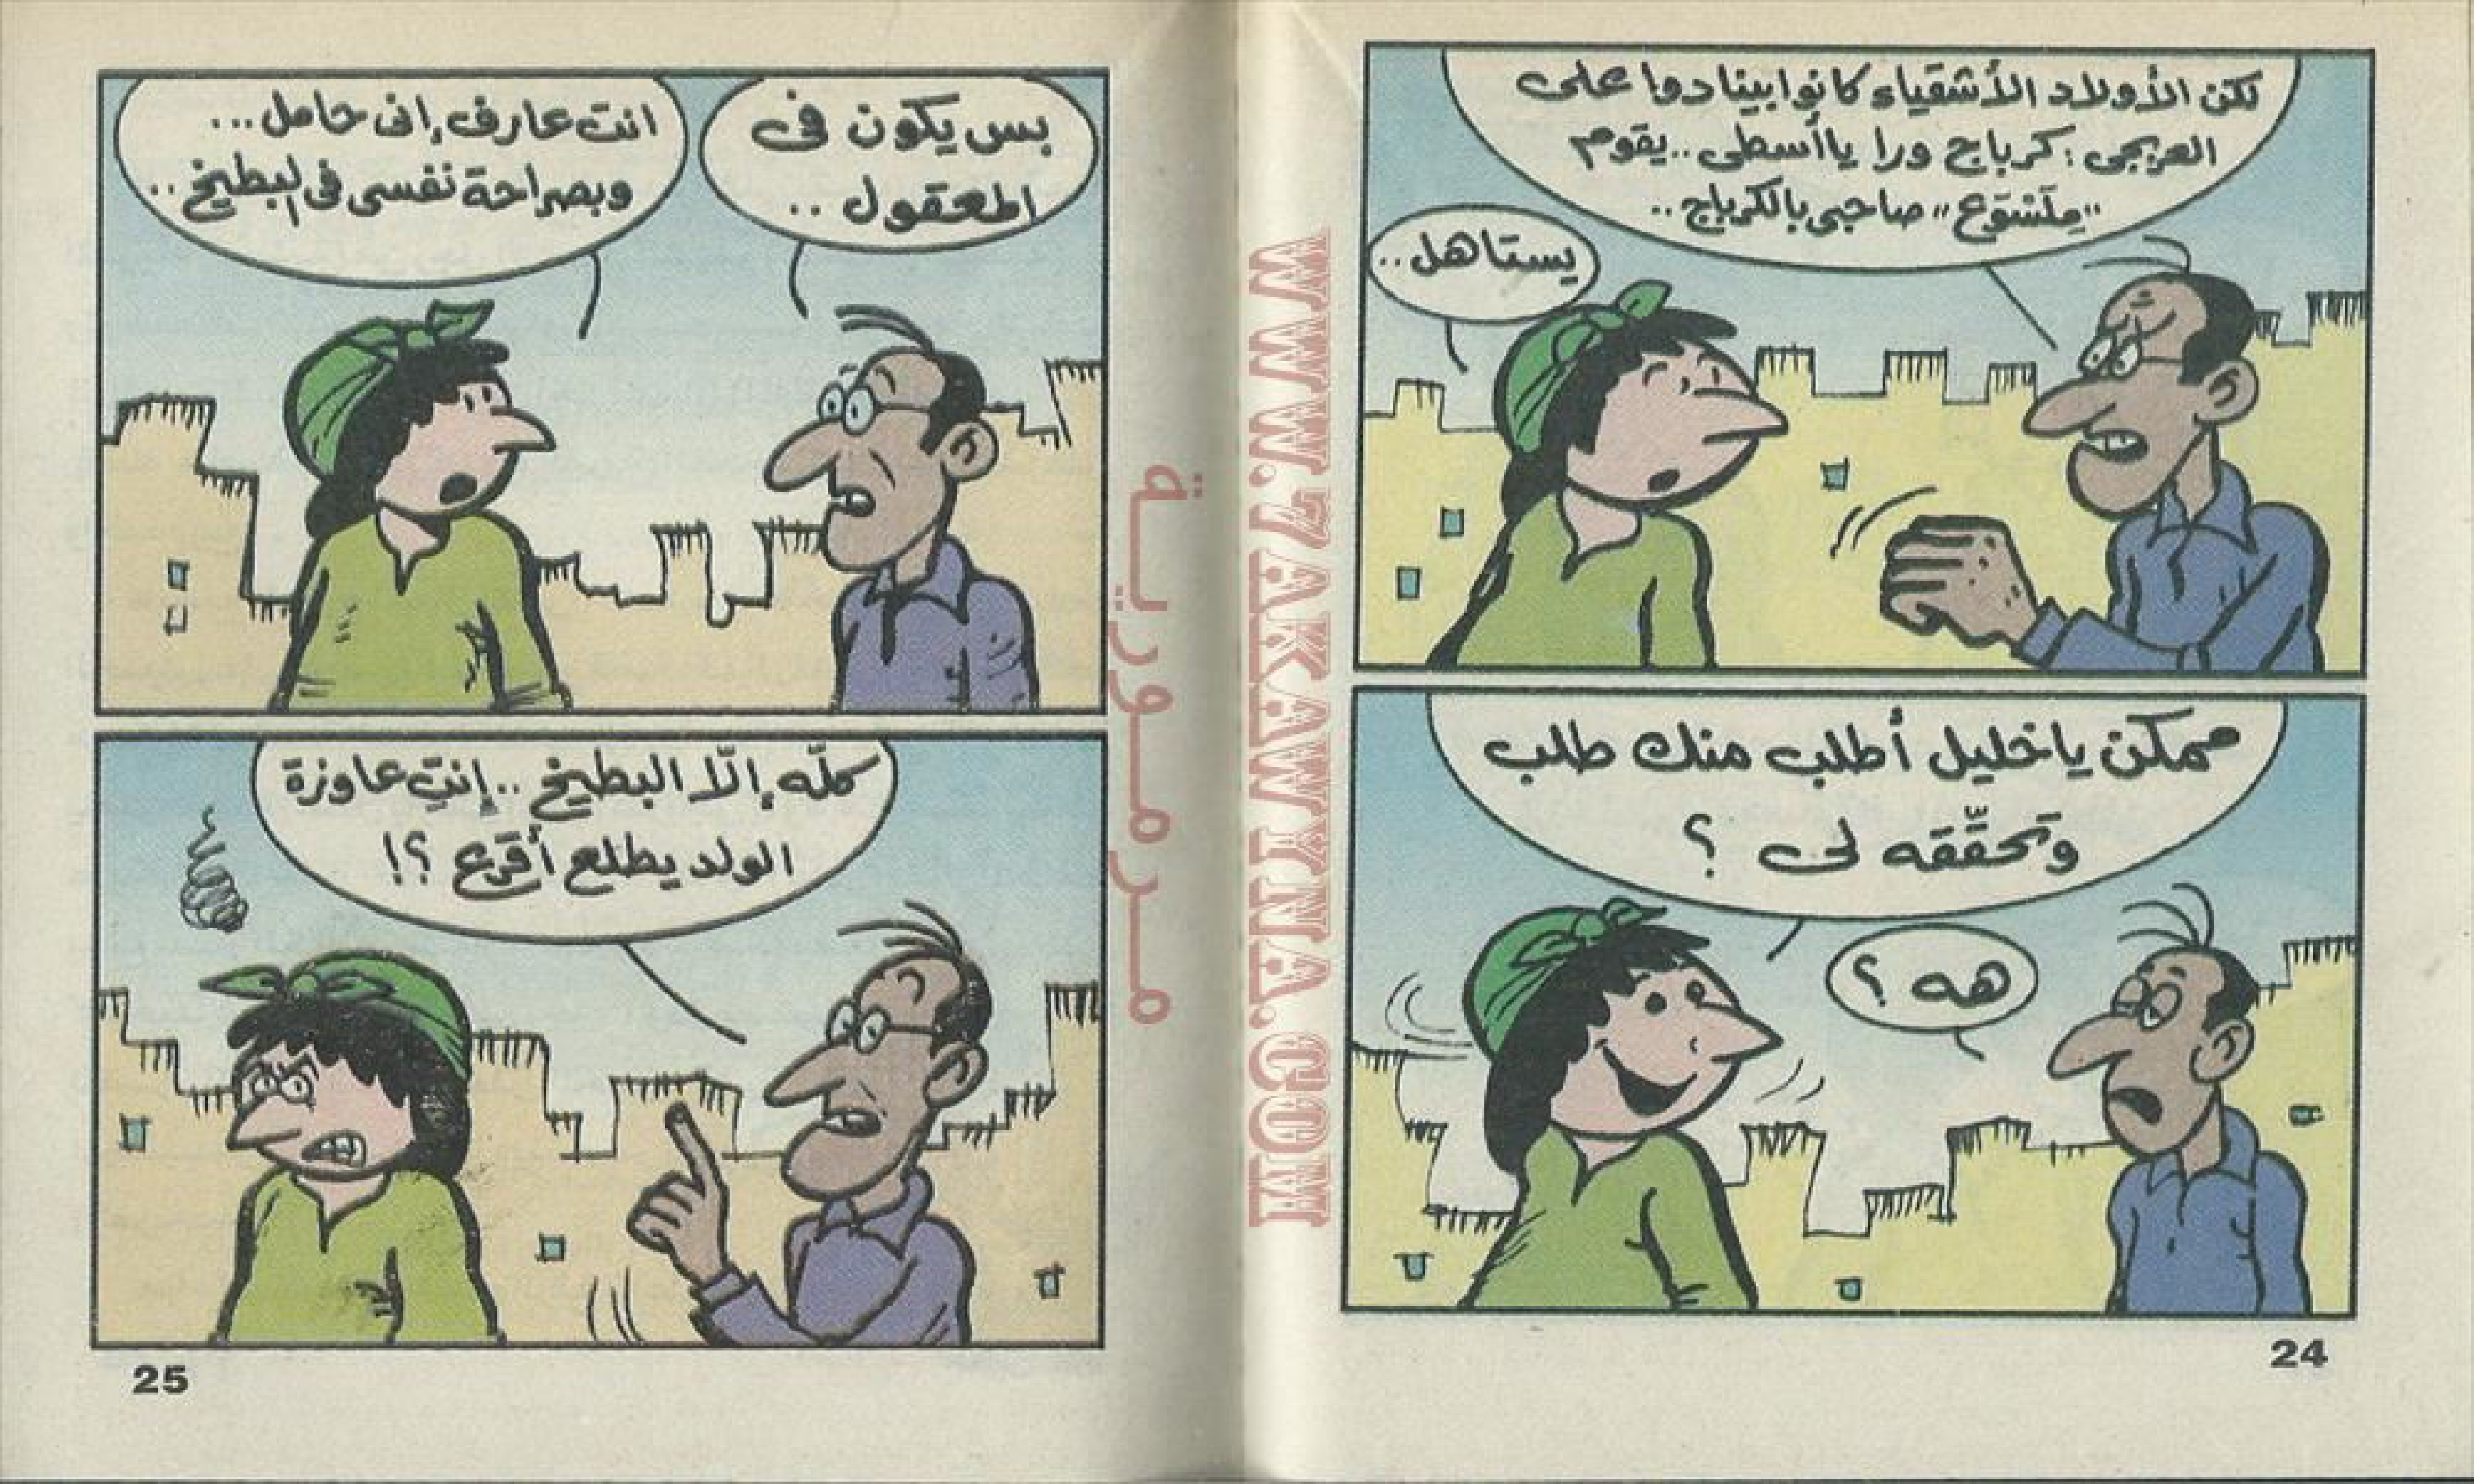 لكن الأولاد الأشقياء كانوا بينادوا على
العربجى : كرباج ورا ياأسطى .. يقوم
"مِلَسْوَع" صاحبى بالكرباج ..
يستاهل ..
ممكن ياخليل أطلب منك طلب
وتحقَّقه لى ؟
هه ؟
24
بس يكون فى
المعقول ..
انت عارف إنى حامل ...
وبصراحة نفسى فى البطيخ ..
كلّه إلّا البطيخ .. إنتِ عاوزة
الولد يطلع أقرع ؟!
25
مرمورية
WWW.ZAKAWINNA.COM